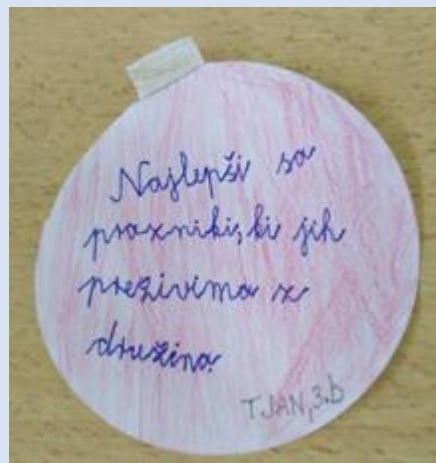 Najlepši so
prazniki, ki jih
preživimo z
družino.
TJAN, 3.b